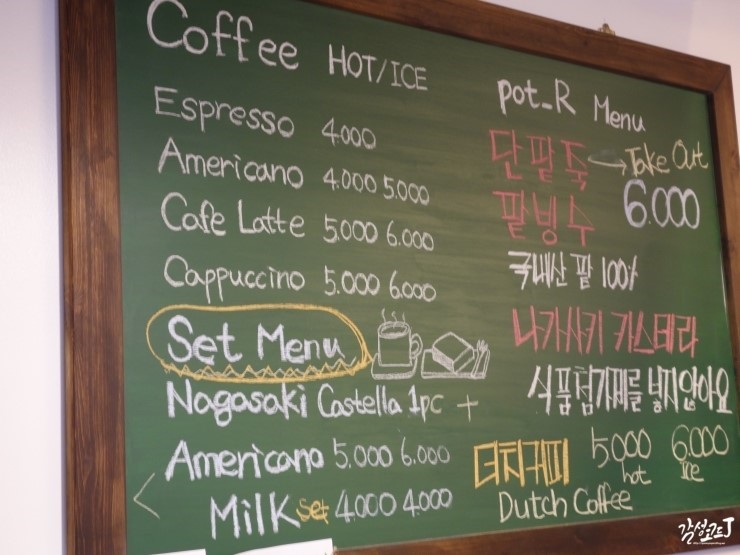 Coffee HOT/ICE
Espresso 4.000
Americano 4.000 5.000
Cafe Latte 5.000 6.000
Cappuccino 5.000 6.000
Set Menu
Nagasaki Castella 1pc +
Americano 5.000 6.000
Milk set 4.000 4.000
pot_R Menu
단팥죽 → Take Out
팥빙수 6.000
국내산 팥 100%
나가사키 카스테라
식품첨가제를 넣지않아요
더치커피 5.000 6.000
hot Ice
Dutch Coffee
감성코드J